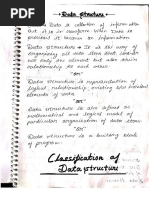 → Data Structure ←
→ Data is collection of information
But it is in raw form. When Data is
processed it become an information.
→ Data structure → It is the way of
organizing all data item that consider
not only the element but also their
relationship to each other.
"OR"
→ Data structure is representation of
logical relationship existing b/w individual
elements of data.
"OR"
→ Data structure is also defined as
mathematical and logical model of
particular organisation of data item.
"OR"
→ Data structure is a building block
of program.
Classification of
Data structure